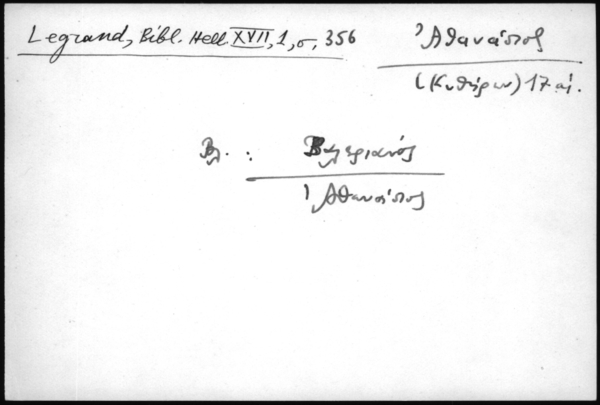 Legrand, Bibl. Hell. XVII, 1, σ, 356
Ἀθανάσιος
(Κυθήρων) 17 αἰ.
Βλ. : Βαλεριανός
Ἀθανάσιος